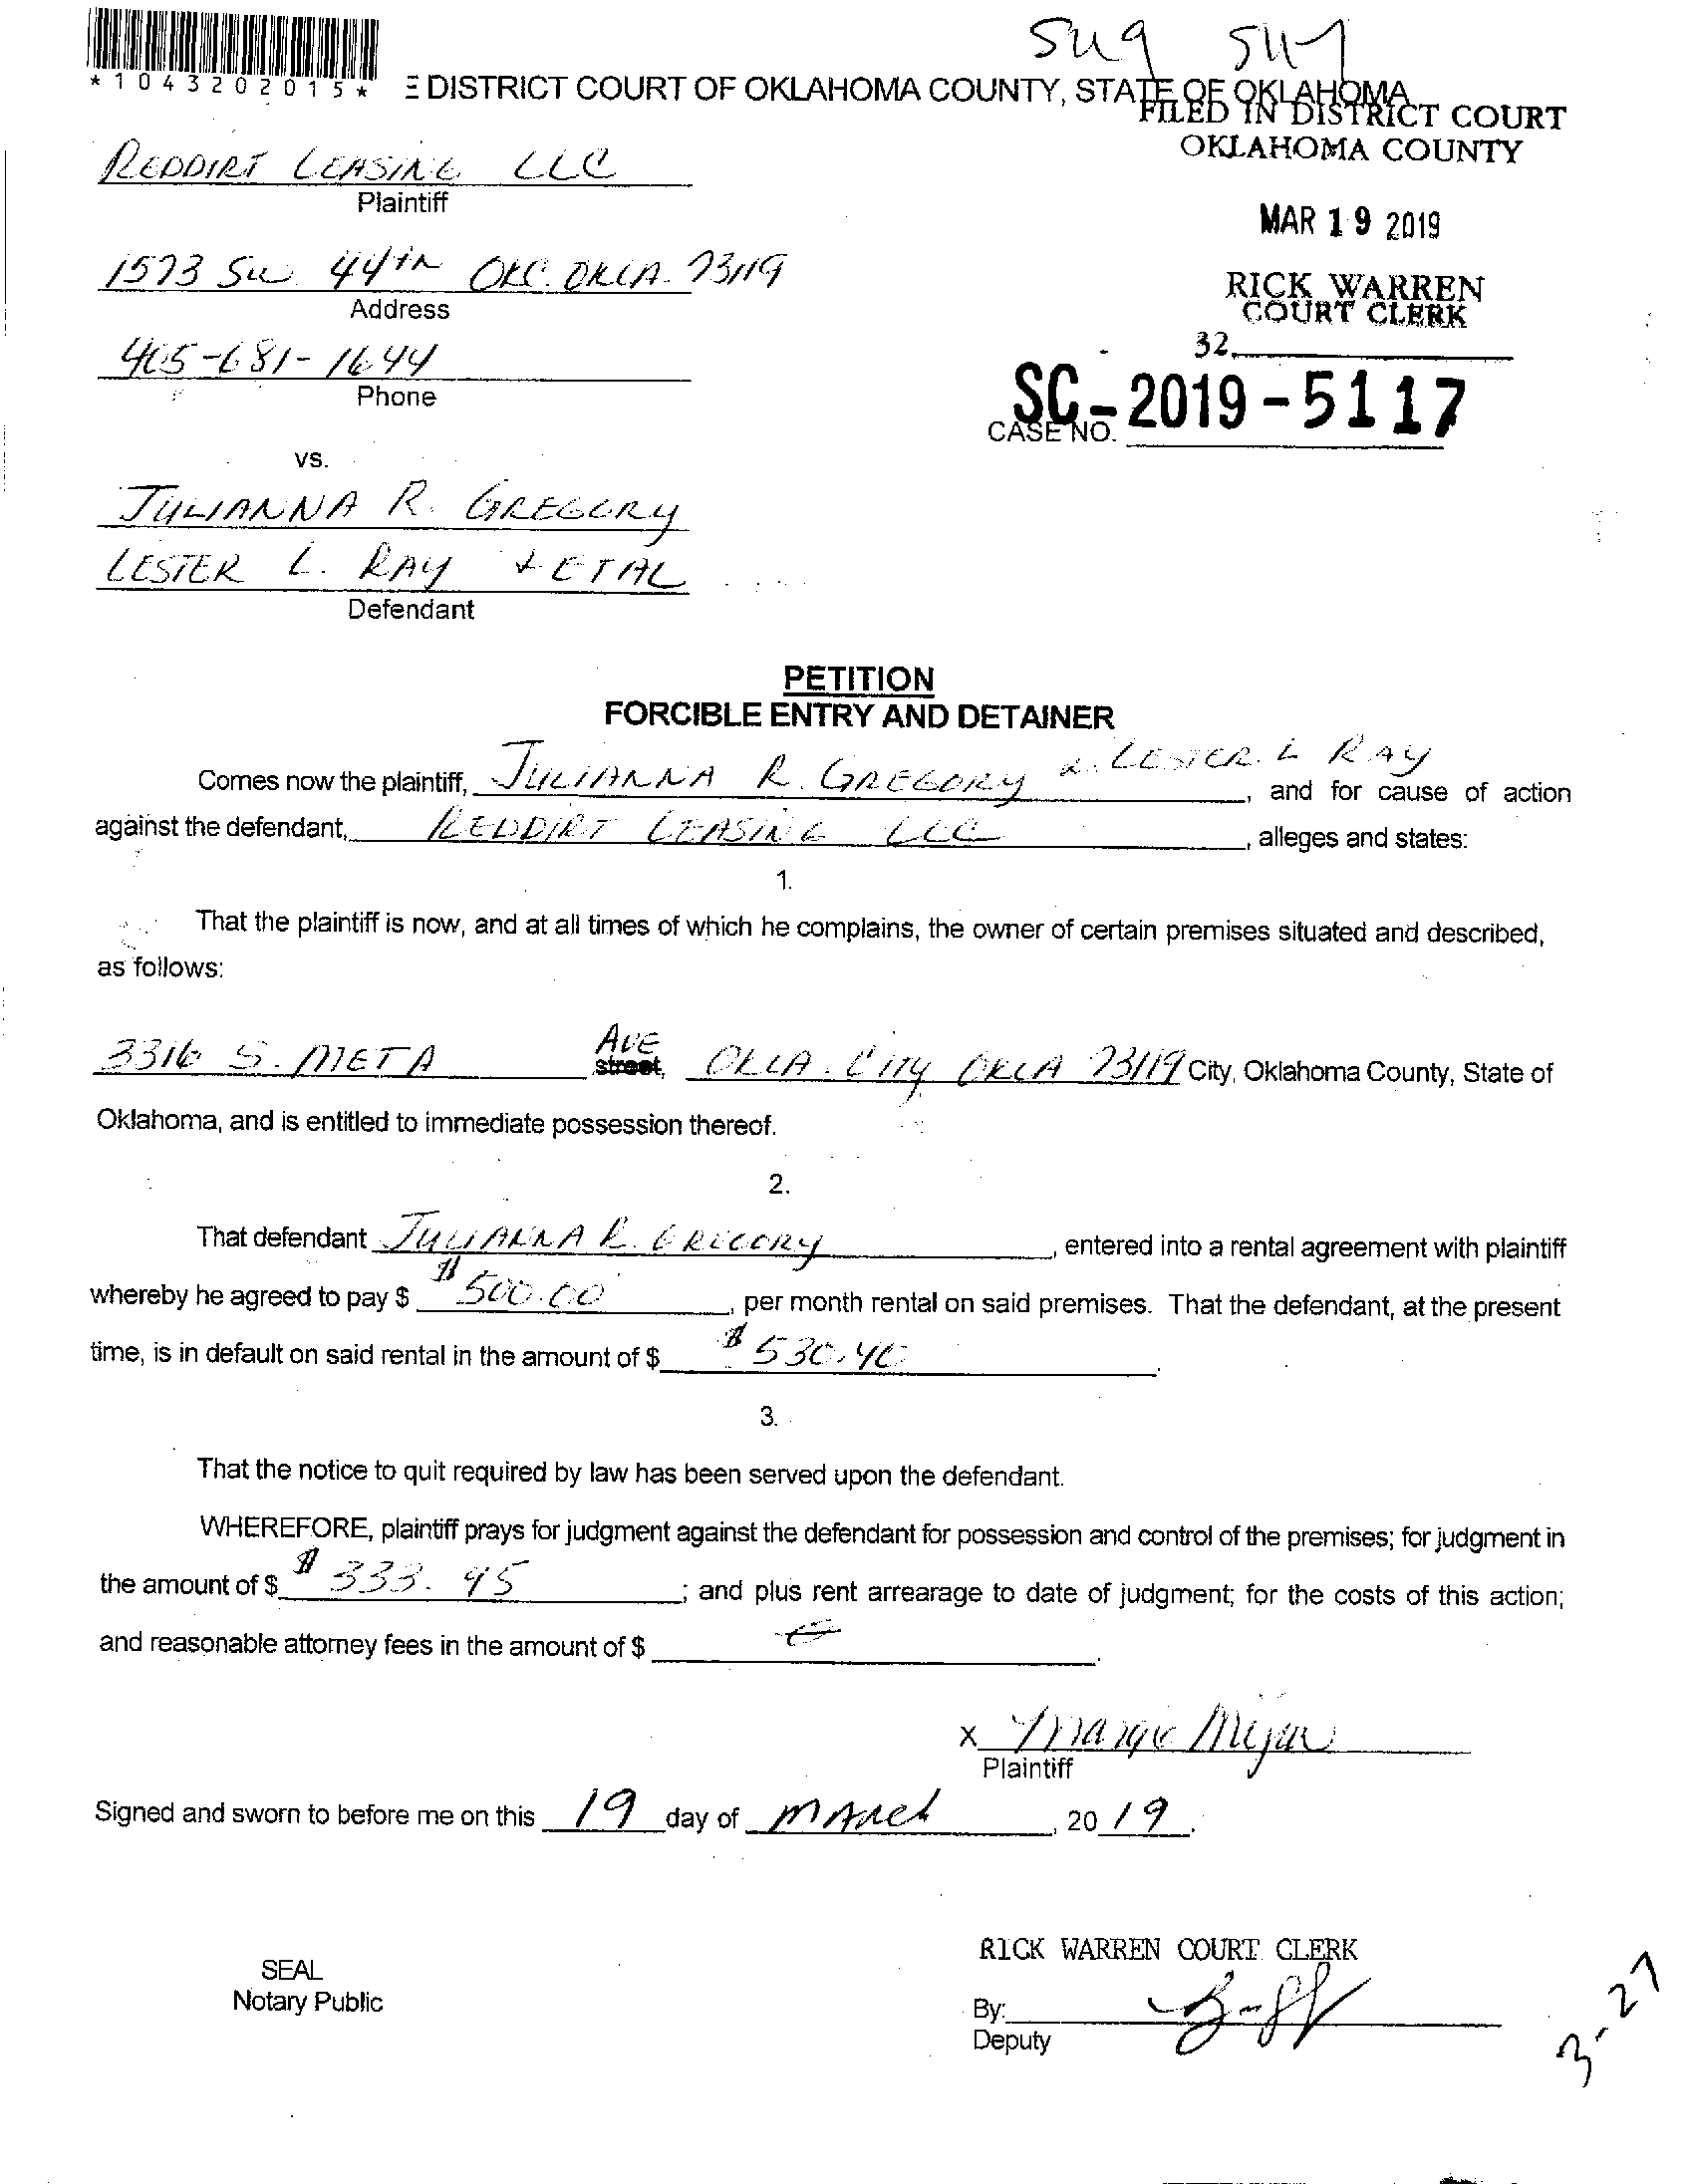 *1043202015*
E DISTRICT COURT OF OKLAHOMA COUNTY, STATE OF OKLAHOMA
FILED IN DISTRICT COURT
OKLAHOMA COUNTY
REDDIRT LEASING LLC
Plaintiff
MAR 19 2019
1573 SW 44th OKC. OKLA. 73119
Address
RICK WARREN
COURT CLERK
405-681-1644
Phone
32
SC-2019-5117
CASE NO.
vs.
JULIANNA R. GREGORY
LESTER L. RAY & ETAL
Defendant
PETITION
FORCIBLE ENTRY AND DETAINER
Comes now the plaintiff, JULIANNA R. GREGORY & LESTER. L RAY, and for cause of action
against the defendant, REDDIRT LEASING LLC, alleges and states:
1.
That the plaintiff is now, and at all times of which he complains, the owner of certain premises situated and described,
as follows:
3316 S. META AVE street, OKLA. CITY OKLA 73119 City, Oklahoma County, State of
Oklahoma, and is entitled to immediate possession thereof.
2.
That defendant JULIANNA R. GREGORY, entered into a rental agreement with plaintiff
whereby he agreed to pay $ $500.00, per month rental on said premises. That the defendant, at the present
time, is in default on said rental in the amount of $ $530.40.
3.
That the notice to quit required by law has been served upon the defendant.
WHEREFORE, plaintiff prays for judgment against the defendant for possession and control of the premises; for judgment in
the amount of $ $333.95; and plus rent arrearage to date of judgment; for the costs of this action;
and reasonable attorney fees in the amount of $
X
Plaintiff
Signed and sworn to before me on this 19 day of MARCH, 2019.
RICK WARREN COURT CLERK
SEAL
Notary Public
By:
Deputy
3-27